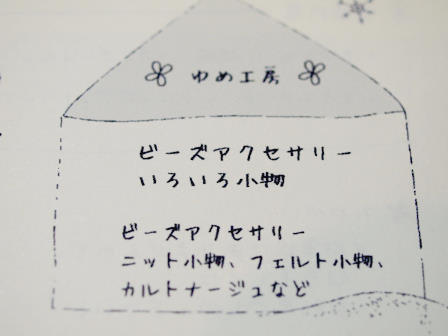 ゆめ工房
ビーズアクセサリー
いろいろ小物
ビーズアクセサリー
ニット小物、フェルト小物、
カルトナージュなど